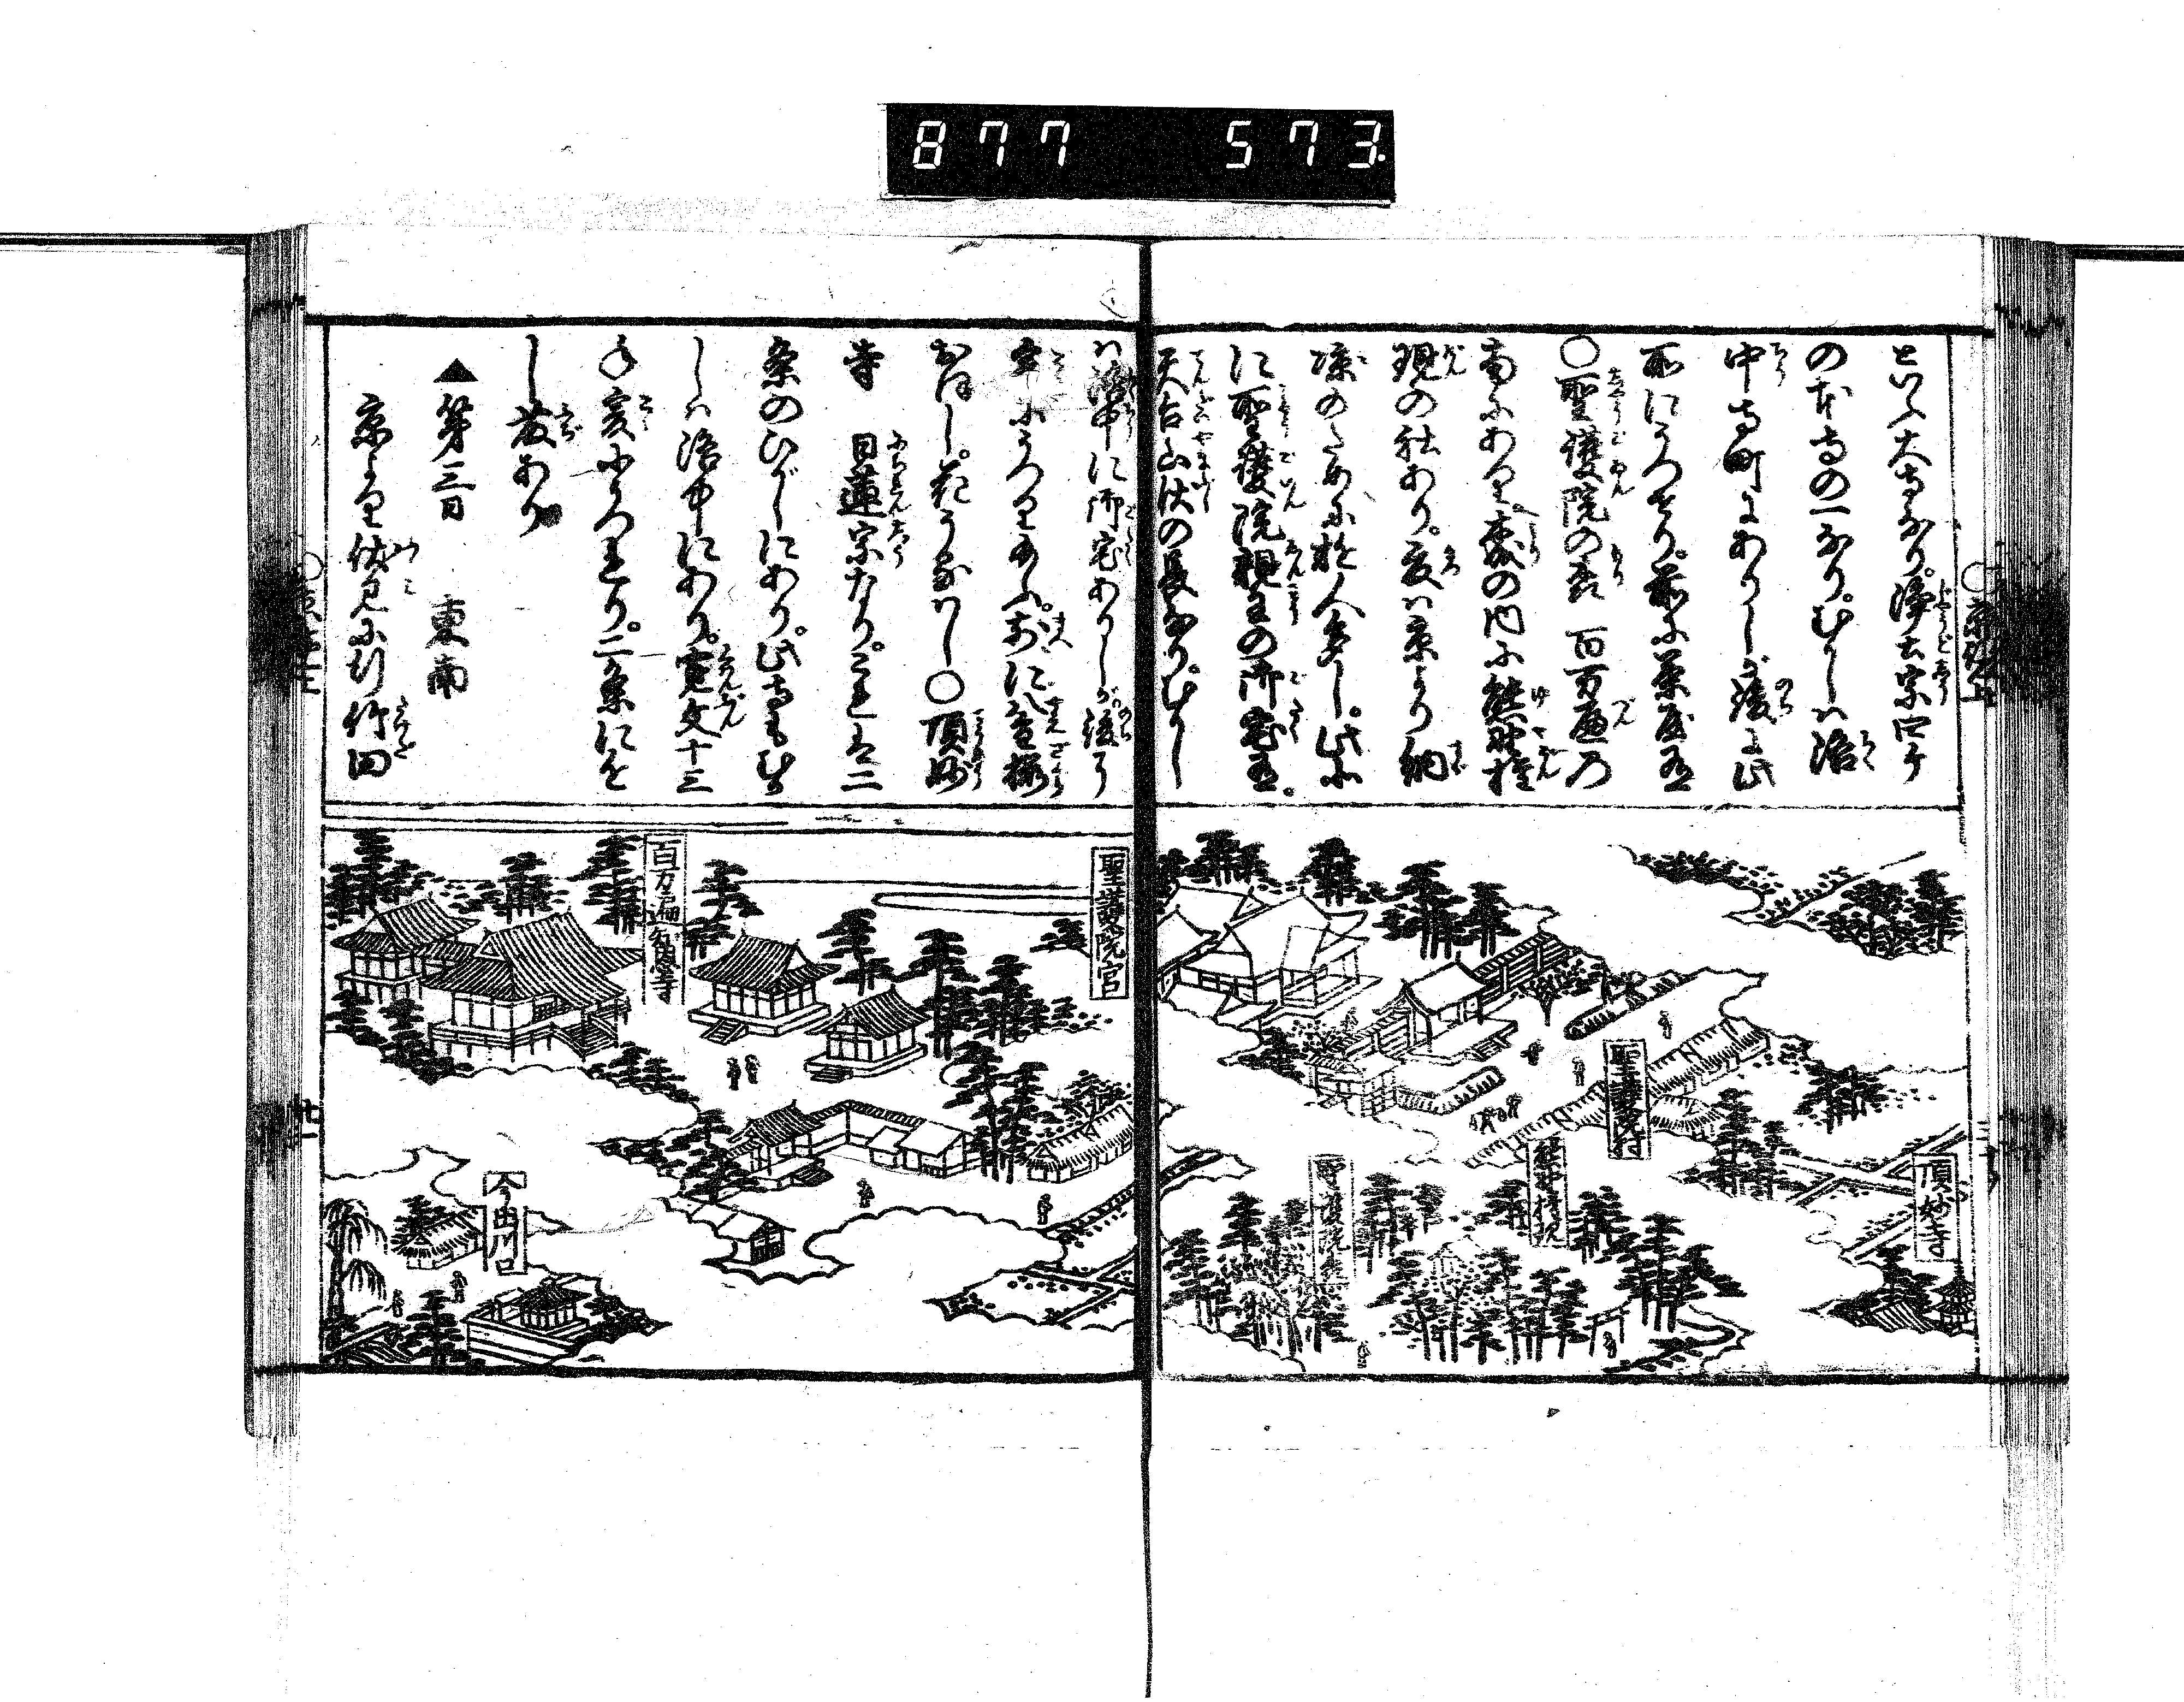 877 573
といふ大寺なり。浄土宗四ケ
の本寺の一なり。むかしは洛
中寺町にありしが後に此
所にうつせり。前に茶屋有
○聖護院の森 百万遍の
南にあり森の内に熊野権
現の社あり。夏は京より納
涼のために遊人多し。此北
に聖護院親王の御宅有。
天台山伏の長なり。むかし
は洛中に御宅ありしが後に
こゝにうつり給ふ。前に八重桜
おほし。花うるはし○頂妙
寺 日蓮宗なり。これも二
条のひがしにあり。此寺もむか
しは洛中にあり。寛文十三
年爰にうつせり。二条にを
し
▲第三日 東南
京より伏見に行竹田
聖護院宮
百万遍知恩寺
今出川口
聖護院村
熊野権現
聖護院森
頂妙寺